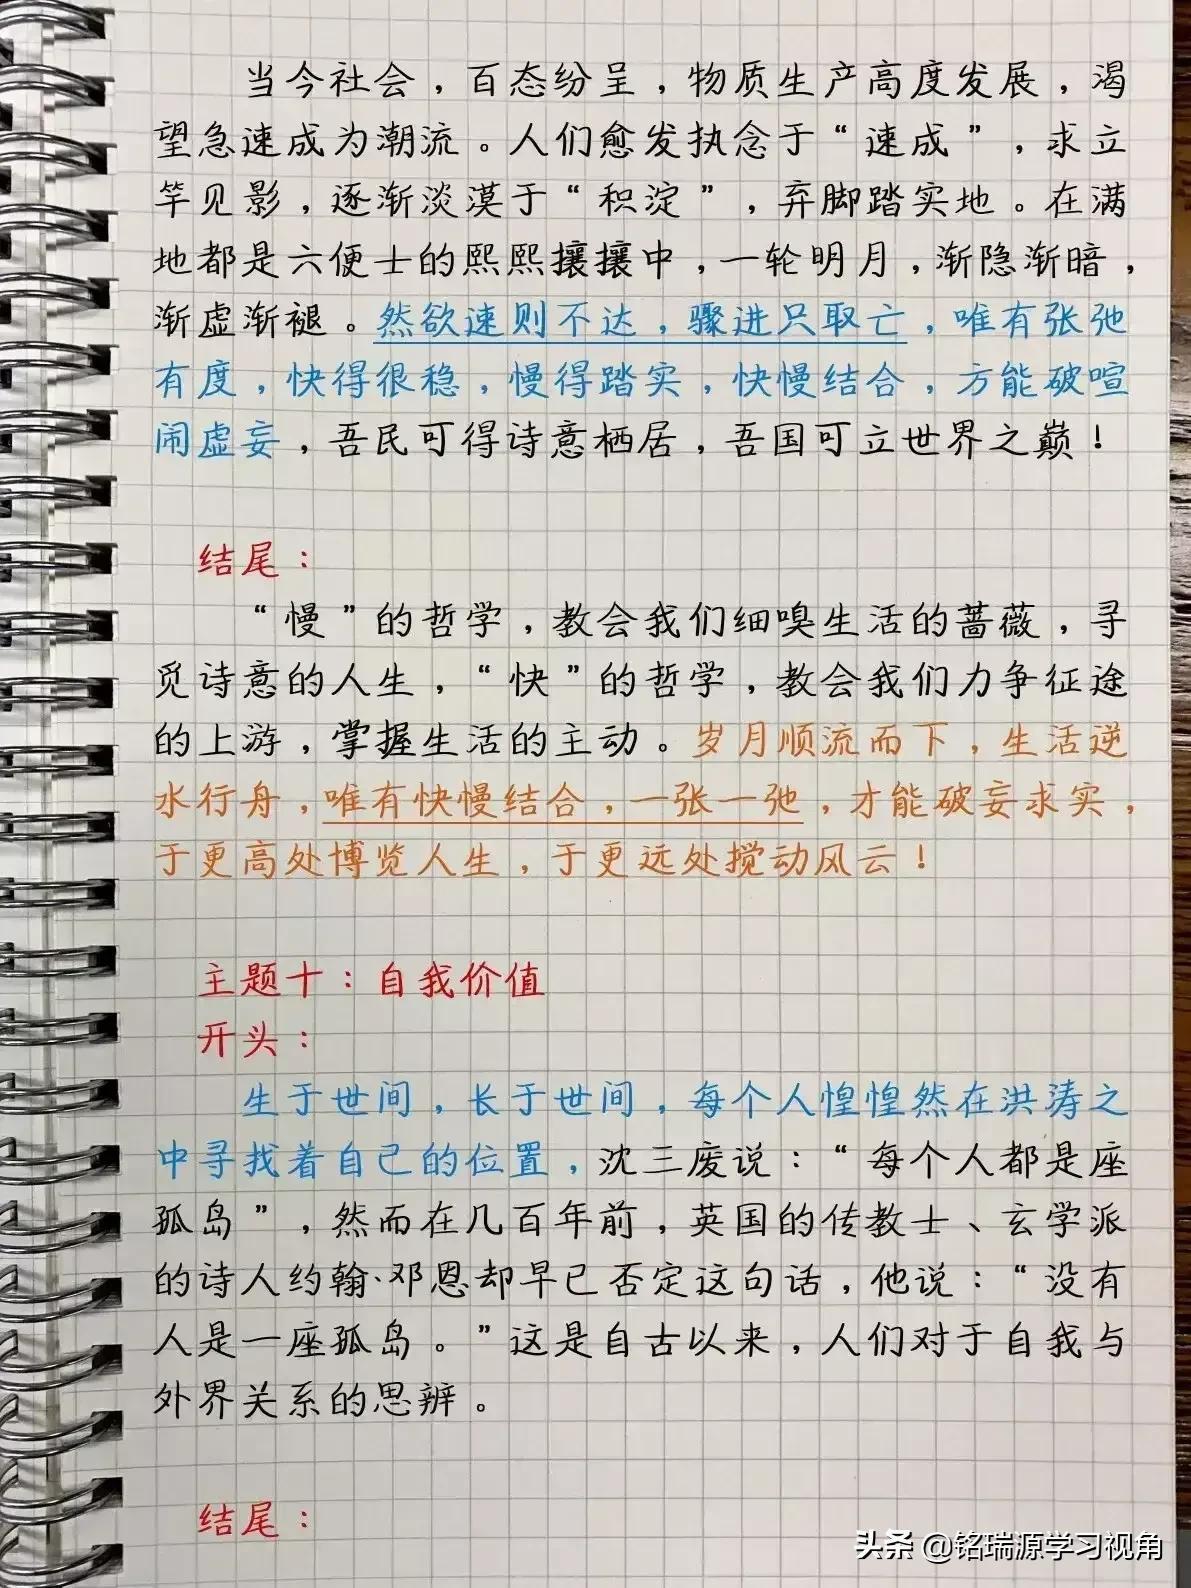 当今社会，百态纷呈，物质生产高度发展，渴
望急速成为潮流。人们愈发执念于“速成”，求立
竿见影，逐渐淡漠于“积淀”，弃脚踏实地。在满
地都是六便士的熙熙攘攘中，一轮明月，渐隐渐暗，
渐虚渐褪。然欲速则不达，骤进只取亡，唯有张弛
有度，快得很稳，慢得踏实，快慢结合，方能破喧
闹虚妄，吾民可得诗意栖居，吾国可立世界之巅！
结尾：
“慢”的哲学，教会我们细嗅生活的蔷薇，寻
觅诗意的人生，“快”的哲学，教会我们力争征途
的上游，掌握生活的主动。岁月顺流而下，生活逆
水行舟，唯有快慢结合，一张一弛，才能破妄求实，
于更高处博览人生，于更远处搅动风云！
主题十：自我价值
开头：
生于世间，长于世间，每个人惶惶然在洪涛之
中寻找着自己的位置，沈三废说：“每个人都是座
孤岛”，然而在几百年前，英国的传教士、玄学派
的诗人约翰·邓恩却早已否定这句话，他说：“没有
人是一座孤岛。”这是自古以来，人们对于自我与
外界关系的思辨。
结尾：
头条 @铭瑞源学习视角